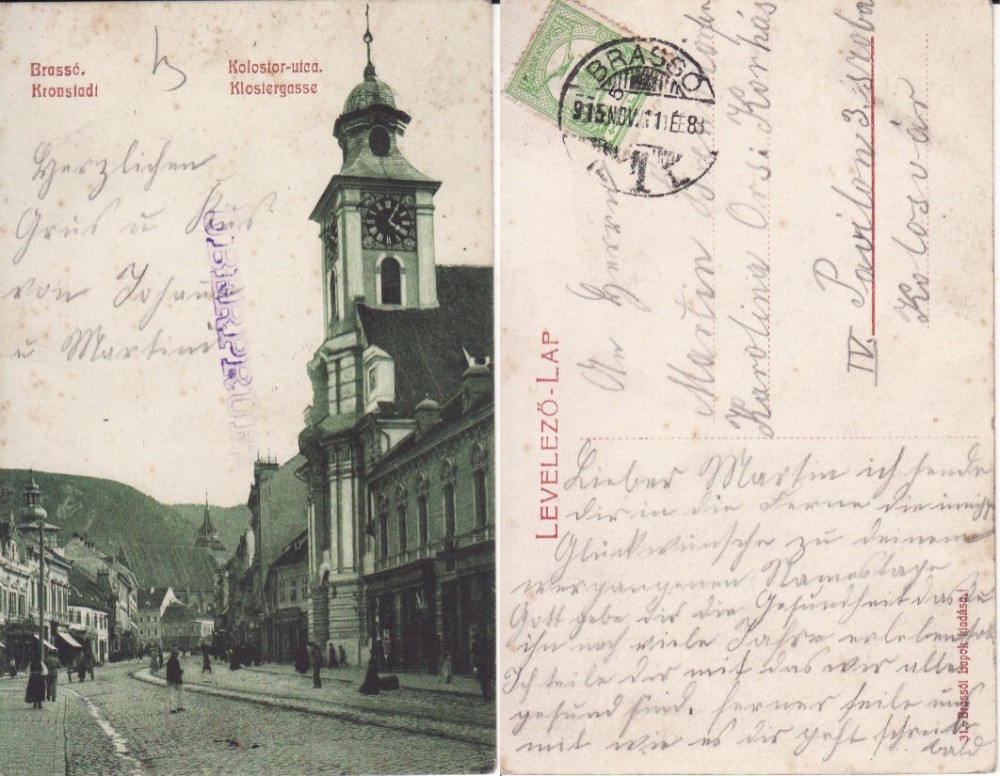 Brassó.
Kronstadt
Kolostor-utca.
Klostergasse
Herzlichen
Grus u Kus
von Johan
u Martini
BRASSÓ
915 NOV. 11 É 8
LEVELEZŐ-LAP
An Herrn
Martin
Karolina Orsi Korház
IV. Pavilon 3 szoba
Kolosvár
Lieber Martin ich sende
dir in die Ferne die innigst
Glückwünsche zu deinem
vergangenen Namestage
Gott gebe dir die Gesundheit das du
ihn noch viele Jahre erleben
Ich teile dir mit das wir alle
gesund sind. ferner teile uns
mit wie es dir geht schreibe
bald
31. Brassói Lapok kiadása.